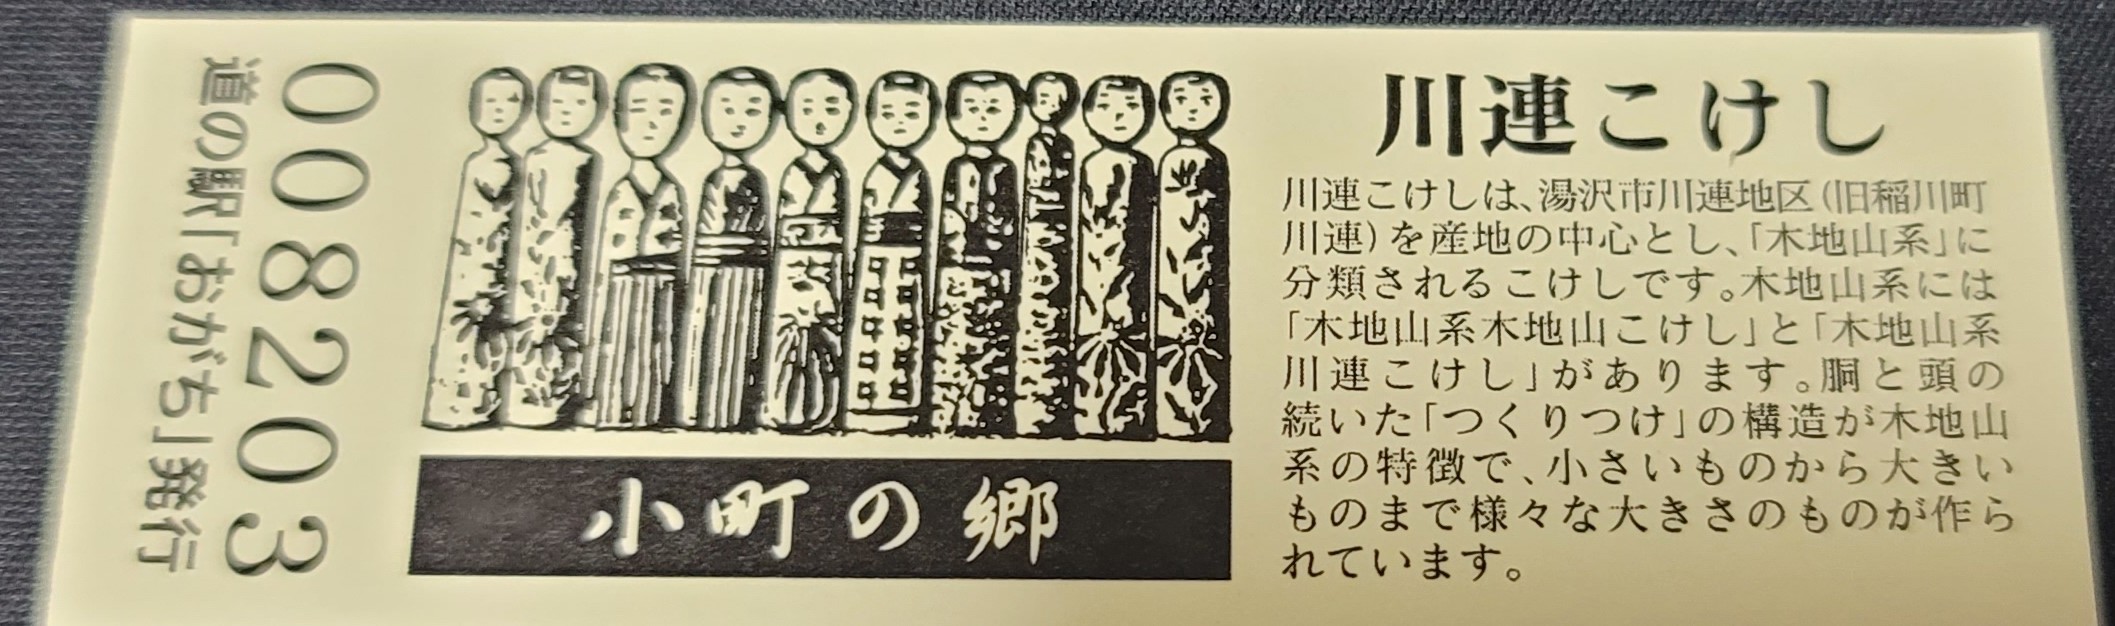 川連こけし
川連こけしは、湯沢市川連地区(旧稲川町
川連)を産地の中心とし、「木地山系」に
分類されるこけしです。木地山系には
「木地山系木地山こけし」と「木地山系
川連こけし」があります。胴と頭の
続いた「つくりつけ」の構造が木地山
系の特徴で、小さいものから大きい
ものまで様々な大きさのものが作ら
れています。
小町の郷
008203
道の駅「おがち」発行